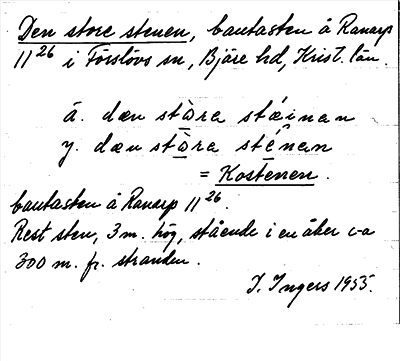 Den store stenen, bautasten å Ranarp
11²⁶ i Förslövs sn, Bjäre hd, Krist. län.
ä. dæn stàra stǽinan
y. dæn stàra sténan
= Kostenen.
bautasten å Ranarp 11²⁶.
Rest sten, 3 m. hög, stående i en åker c-a
300 m. fr. stranden.
I. Ingers 1955.